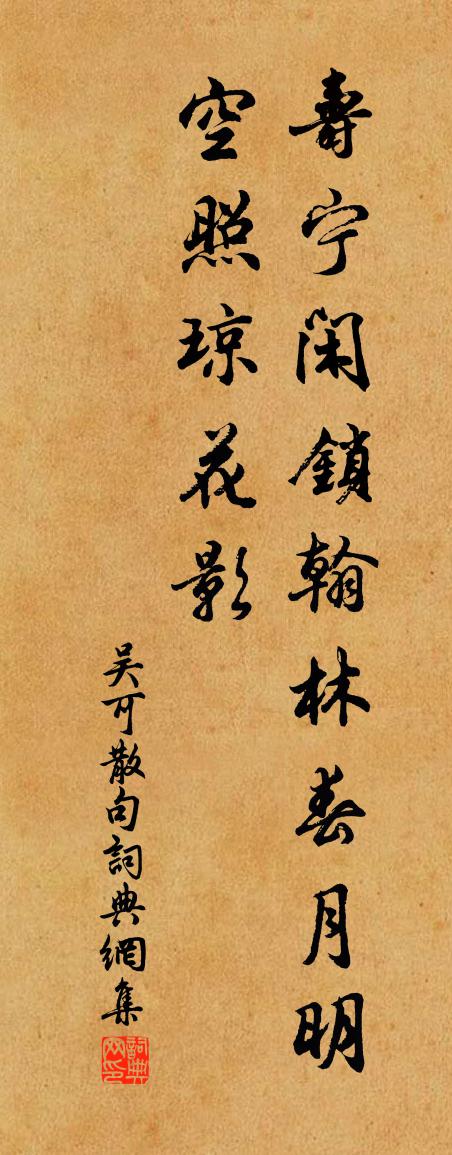 壽宁閑鎖翰林春月明
空照琼花影
吴可散句詞典網集
詞典网印